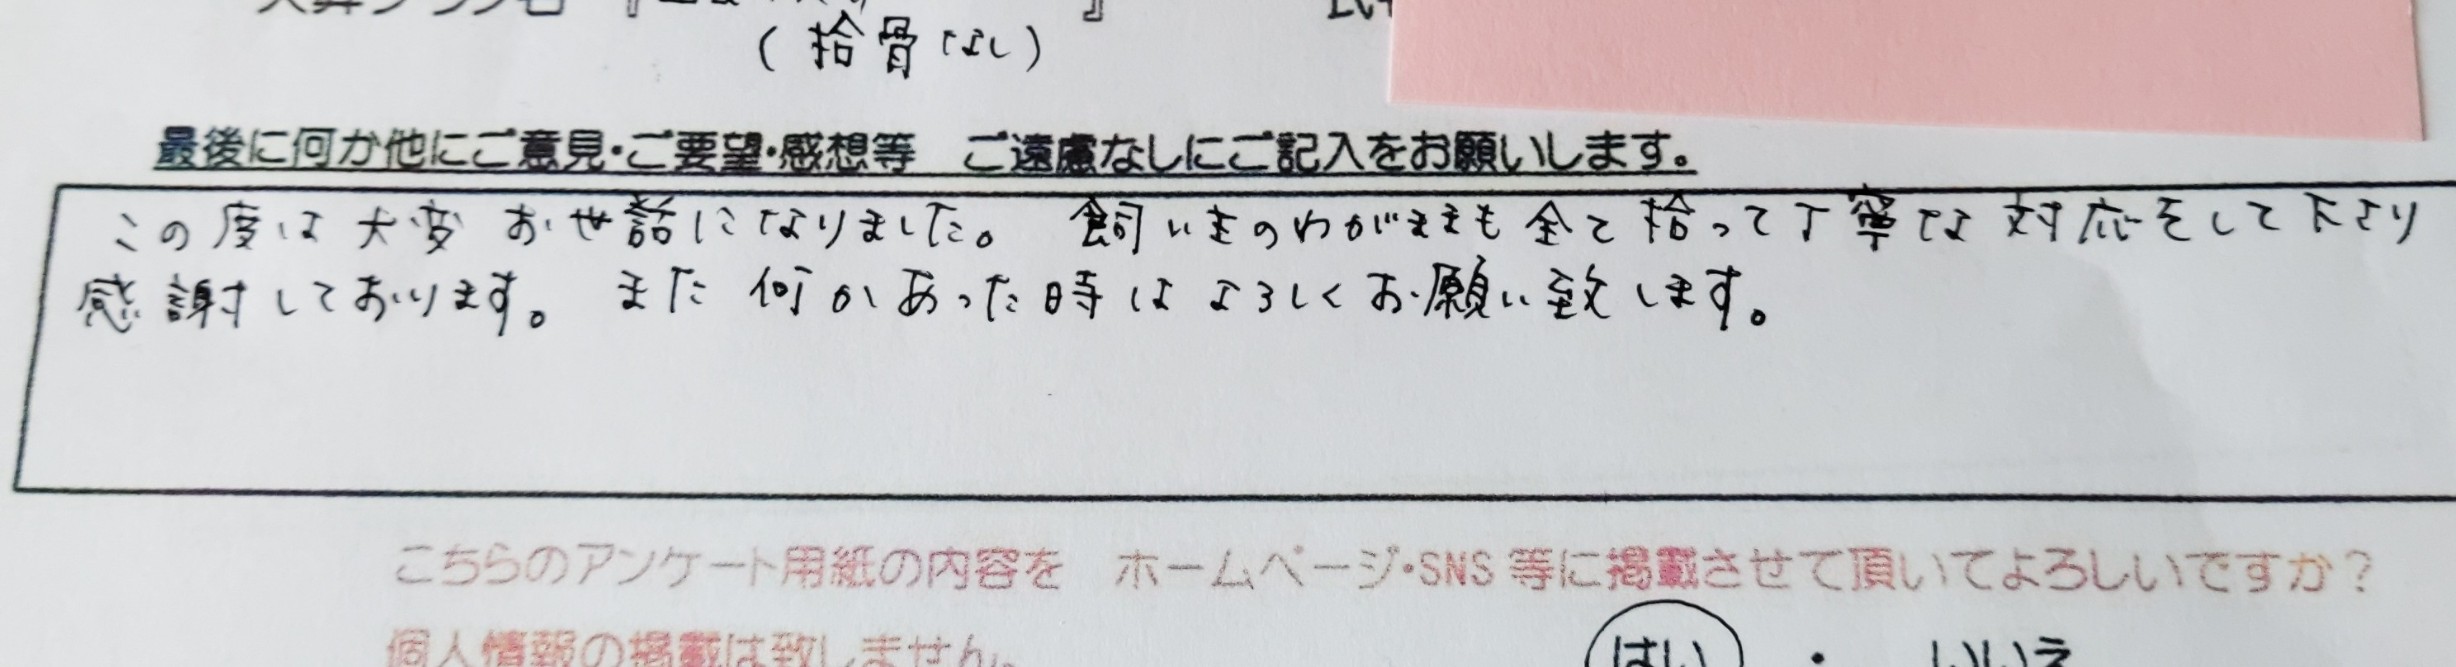 (拾骨なし)
最後に何か他にご意見・ご要望・感想等　ご遠慮なしにご記入をお願いします。
この度は大変お世話になりました。飼い主のわがままも全て拾って丁寧な対応をして下さり
感謝しております。また何かあった時はよろしくお願い致します。
こちらのアンケート用紙の内容を　ホームページ・SNS等に掲載させて頂いてよろしいですか？
個人情報の掲載は致しません。
はい ・ いいえ